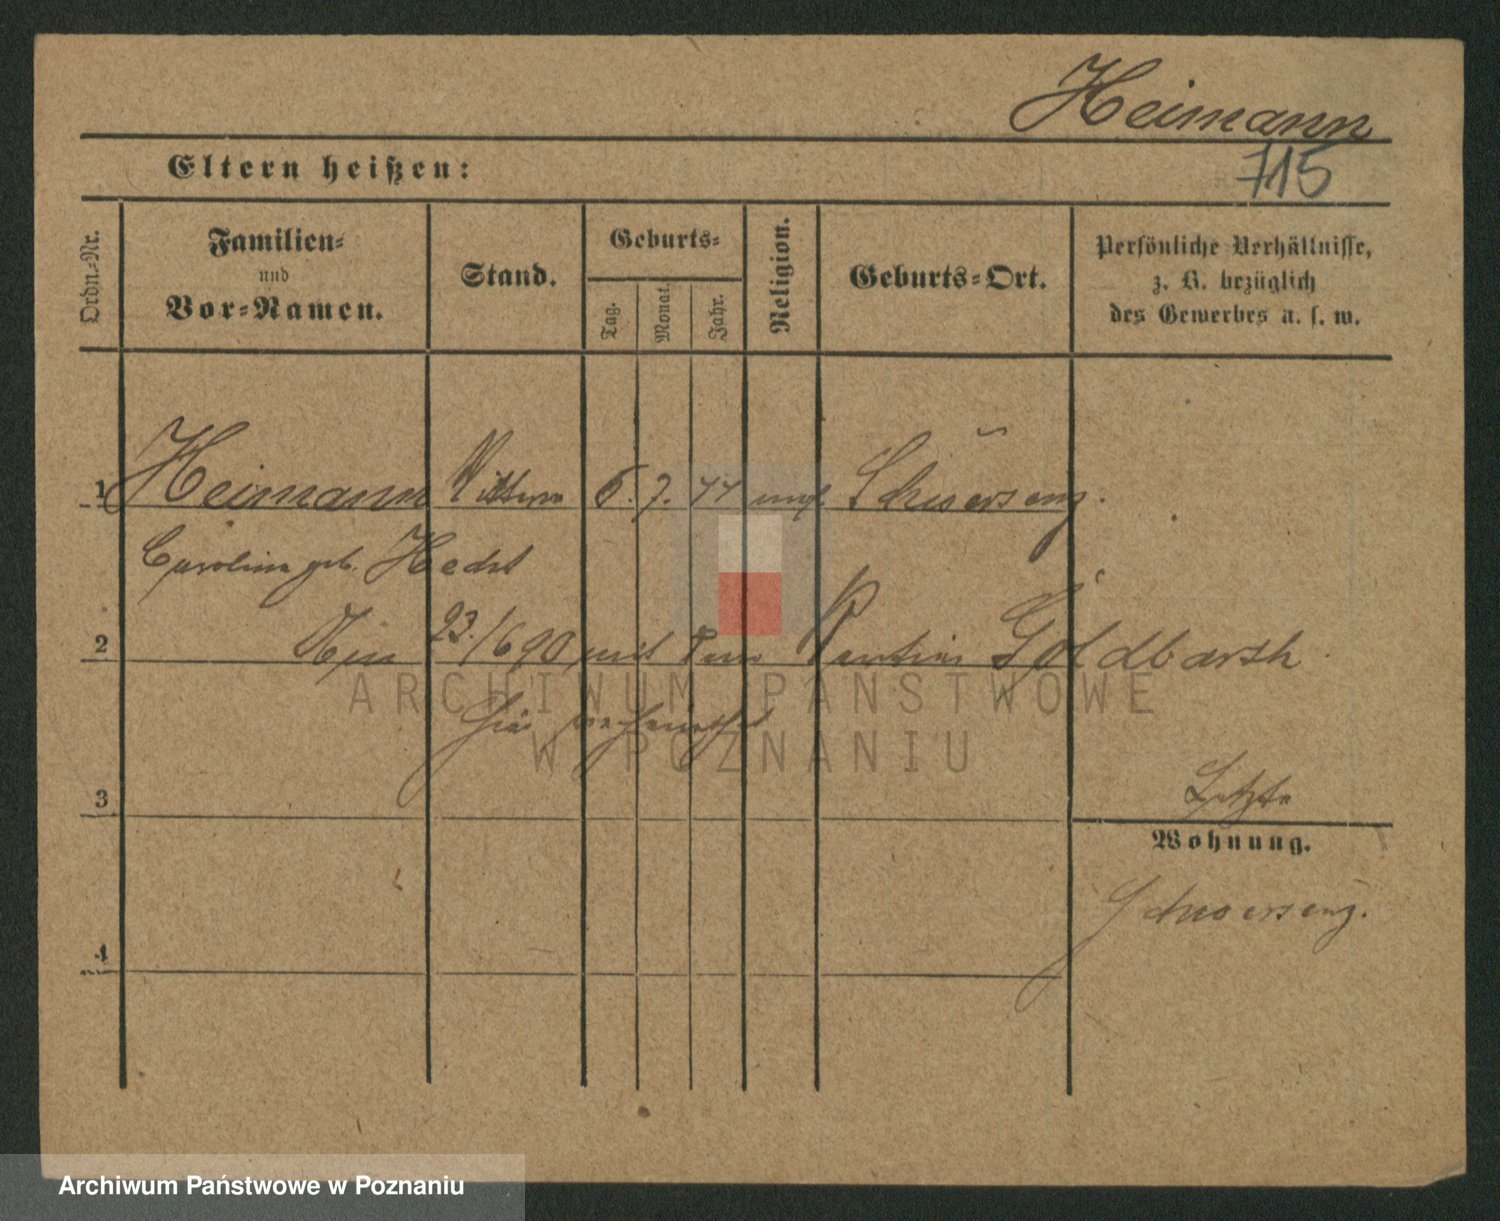 Heimann
715
Eltern heißen:
Ordn.-Nr.
Familien-
und
Vor-Namen.
Stand.
Geburts-
Tag.
Monat.
Jahr.
Religion.
Geburts-Ort.
Persönliche Verhältnisse,
z. B. bezüglich
des Gewerbes u. s. w.
1 Heimann Wittwe 6. 7. 44 Schwersenz.
Caroline geb. Hecht
2 23./6 90 mit dem Rentier Goldbarth
hier verheirathet
3
Letzte
Wohnung.
Schwersenz.
4
ARCHIWUM PAŃSTWOWE
W POZNANIU
Archiwum Państwowe w Poznaniu